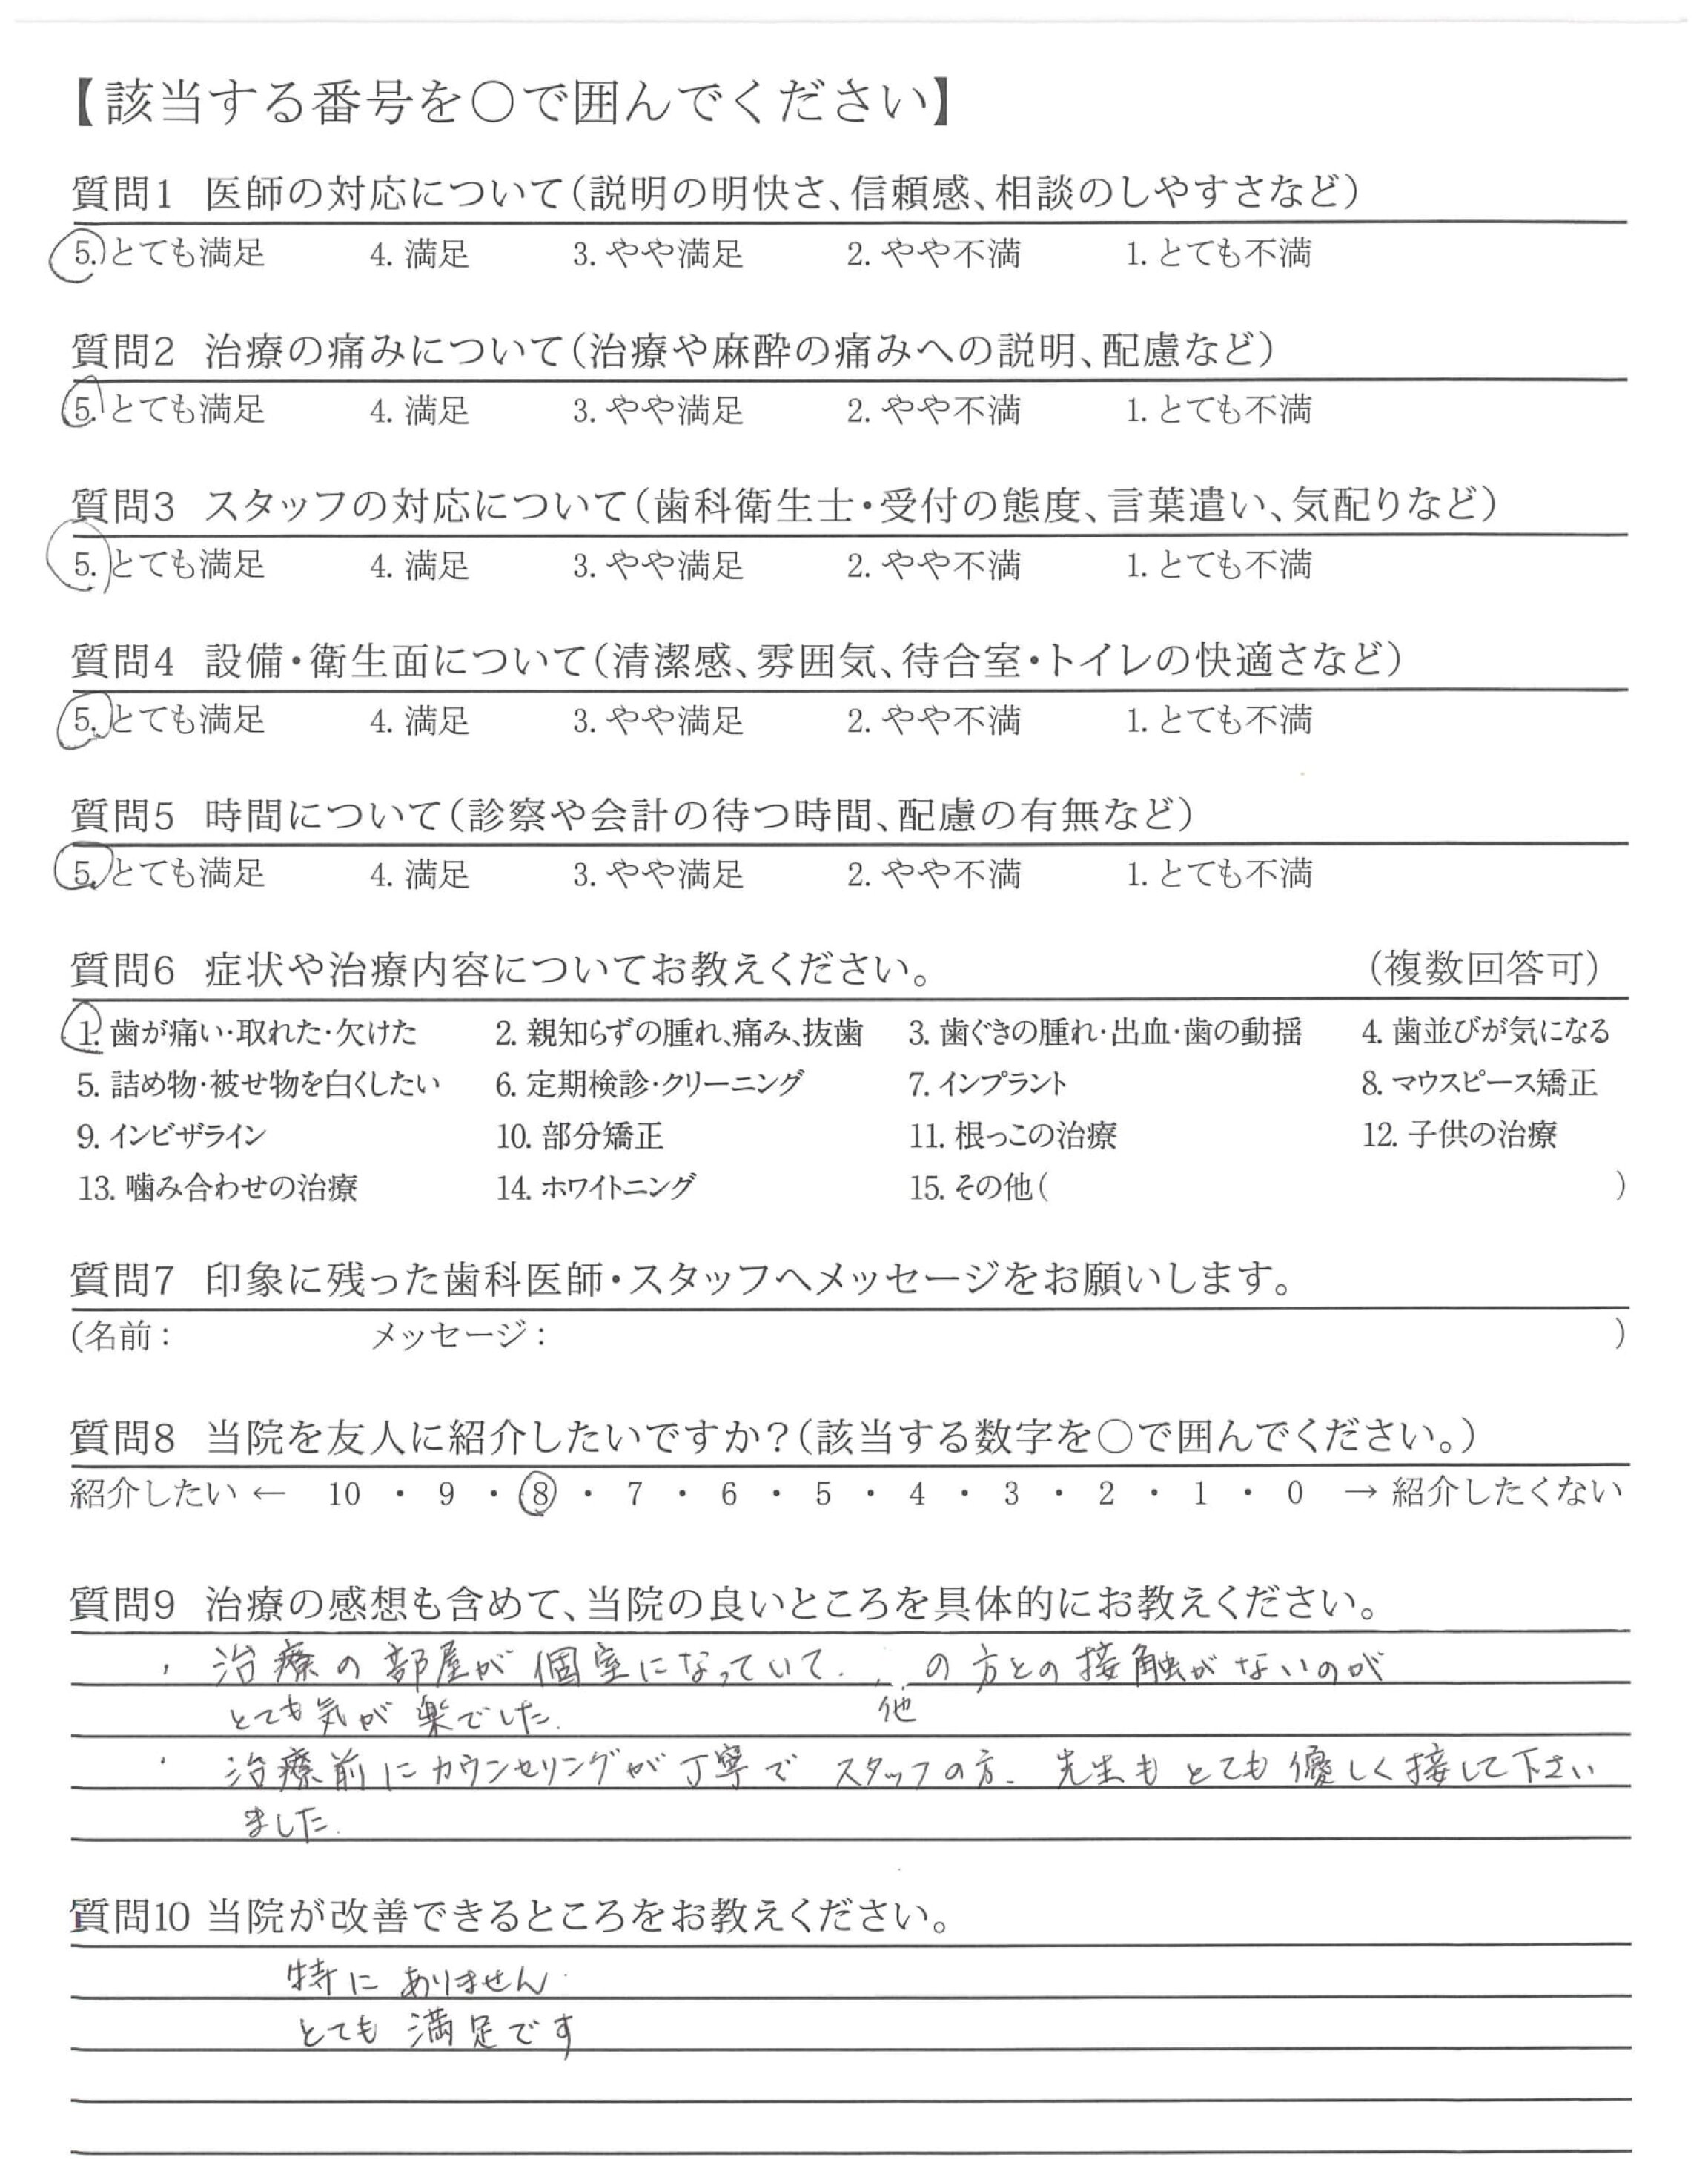 【該当する番号を○で囲んでください】
質問1 医師の対応について(説明の明快さ、信頼感、相談のしやすさなど)
5. とても満足 4. 満足 3. やや満足 2. やや不満 1. とても不満
質問2 治療の痛みについて(治療や麻酔の痛みへの説明、配慮など)
5. とても満足 4. 満足 3. やや満足 2. やや不満 1. とても不満
質問3 スタッフの対応について(歯科衛生士・受付の態度、言葉遣い、気配りなど)
5. とても満足 4. 満足 3. やや満足 2. やや不満 1. とても不満
質問4 設備・衛生面について(清潔感、雰囲気、待合室・トイレの快適さなど)
5. とても満足 4. 満足 3. やや満足 2. やや不満 1. とても不満
質問5 時間について(診察や会計の待つ時間、配慮の有無など)
5. とても満足 4. 満足 3. やや満足 2. やや不満 1. とても不満
質問6 症状や治療内容についてお教えください。 (複数回答可)
1. 歯が痛い・取れた・欠けた 2. 親知らずの腫れ、痛み、抜歯 3. 歯ぐきの腫れ・出血・歯の動揺 4. 歯並びが気になる
5. 詰め物・被せ物を白くしたい 6. 定期検診・クリーニング 7. インプラント 8. マウスピース矯正
9. インビザライン 10. 部分矯正 11. 根っこの治療 12. 子供の治療
13. 噛み合わせの治療 14. ホワイトニング 15. その他( )
質問7 印象に残った歯科医師・スタッフへメッセージをお願いします。
(名前: メッセージ: )
質問8 当院を友人に紹介したいですか?(該当する数字を○で囲んでください。)
紹介したい ← 10 ・ 9 ・ 8 ・ 7 ・ 6 ・ 5 ・ 4 ・ 3 ・ 2 ・ 1 ・ 0 → 紹介したくない
質問9 治療の感想も含めて、当院の良いところを具体的にお教えください。
・ 治療の部屋が個室になっていて、他の方との接触がないのが
とても気が楽でした。
・ 治療前にカウンセリングが丁寧で スタッフの方、先生もとても優しく接して下さい
ました。
質問10 当院が改善できるところをお教えください。
特にありません
とても満足です